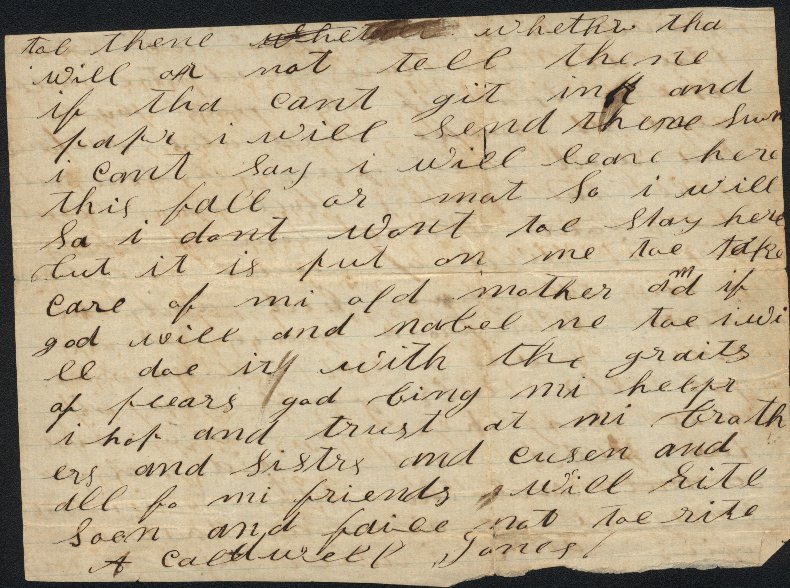 toe thene whether tha
will or not tell thene
if tha cant git ink and
papr i will send thene sum
i cant say i will leave here
this fall or not So i will
Sa i dont wont toe stay here
but it is put on me toe take
care of mi old mother and if
god will and nabel me toe i wi
ll doe it with the graits
of plears god bing mi helpr
i hop and trust at mi broth
ers and Sistrs and cusen and
all fo mi friends will rite
Soen and faile not toe rite
A caldwell Jones